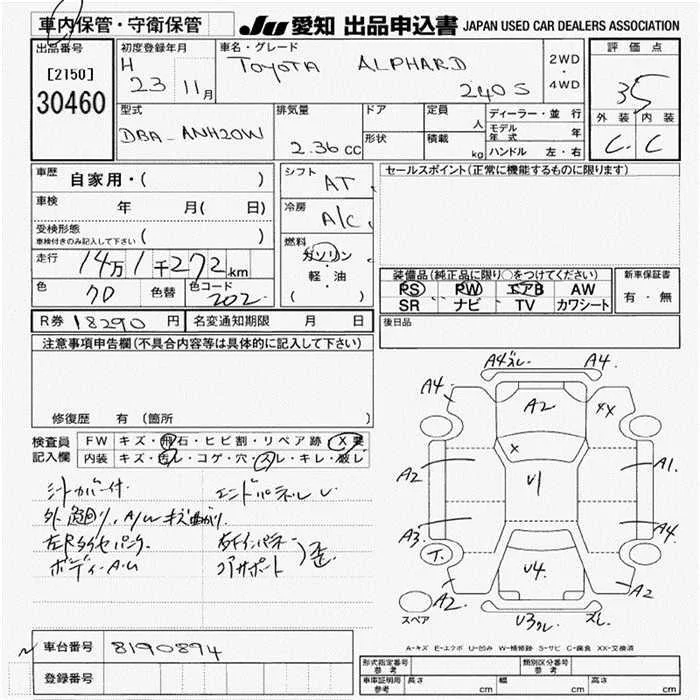 車内保管・守衛保管 JU 愛知 出品申込書 JAPAN USED CAR DEALERS ASSOCIATION
出品番号 初度登録年月 車名・グレード 評価点
[2150] H 23 11月 TOYOTA ALPHARD 240S 2WD・4WD 35
30460 型式 排気量 ドア 定員 人 ディーラー・並行 外装 内装
DBA-ANH20W 2.36cc 形状 積載 kg モデル年式 年 C C
ハンドル 左・右
車歴 自家用・( ) シフト AT セールスポイント(正常に機能するものに限ります)
車検 年 月( 日) 冷房 A/C
受検形態
車検付きのみ記入して下さい ( )
燃料 ガソリン・軽・油 ( )
走行 14万1千272km
装備品(純正品に限り○をつけてください) 新車保証書
色 クロ 色替 色コード 202 PS PW エアB AW 有・無
SR ナビ TV カワシート
R券 18290円 名変通知期限 月 日 後日品
注意事項申告欄(不具合内容等は具体的に記入して下さい)
修復歴 有(箇所 )
検査員記入欄 FW キズ・飛石・ヒビ割・リペア跡・X要
内装 キズ・汚レ・コゲ・穴・スレ・キレ・破レ
シートカバー付 エンドパネル U
ボディーA.U コアサポート)歪
A4ズレ A4
A4 A2 XX
X
A2 U1 A1
A3 A4
T
U4
A2 A2
スペア U3クレ ズレ
A-キズ E-エクボ U-凹み W-補修跡 S-サビ C-腐食 XX-交換済
車台番号 8190894
登録番号
形式指定番号 参考 類別区分番号 参考
車庫証明用 参考 長さ cm 幅 cm 高さ cm